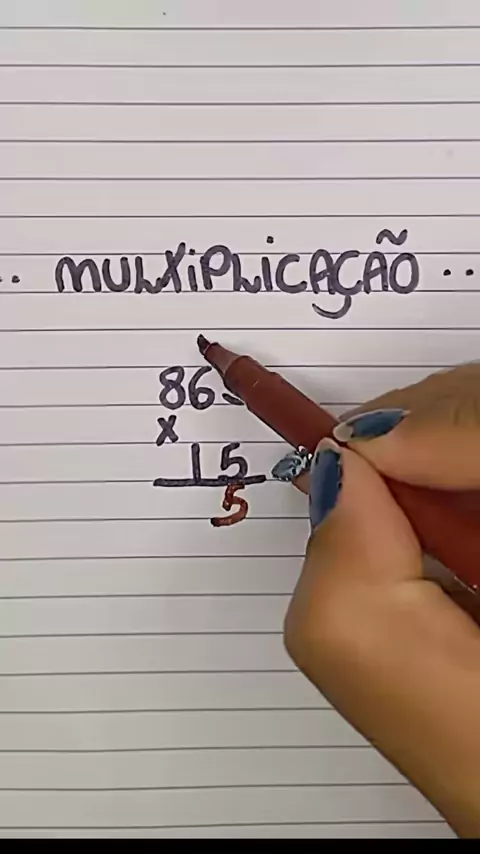 .. MULTIPLICAÇÃO ..
86
x
15
5